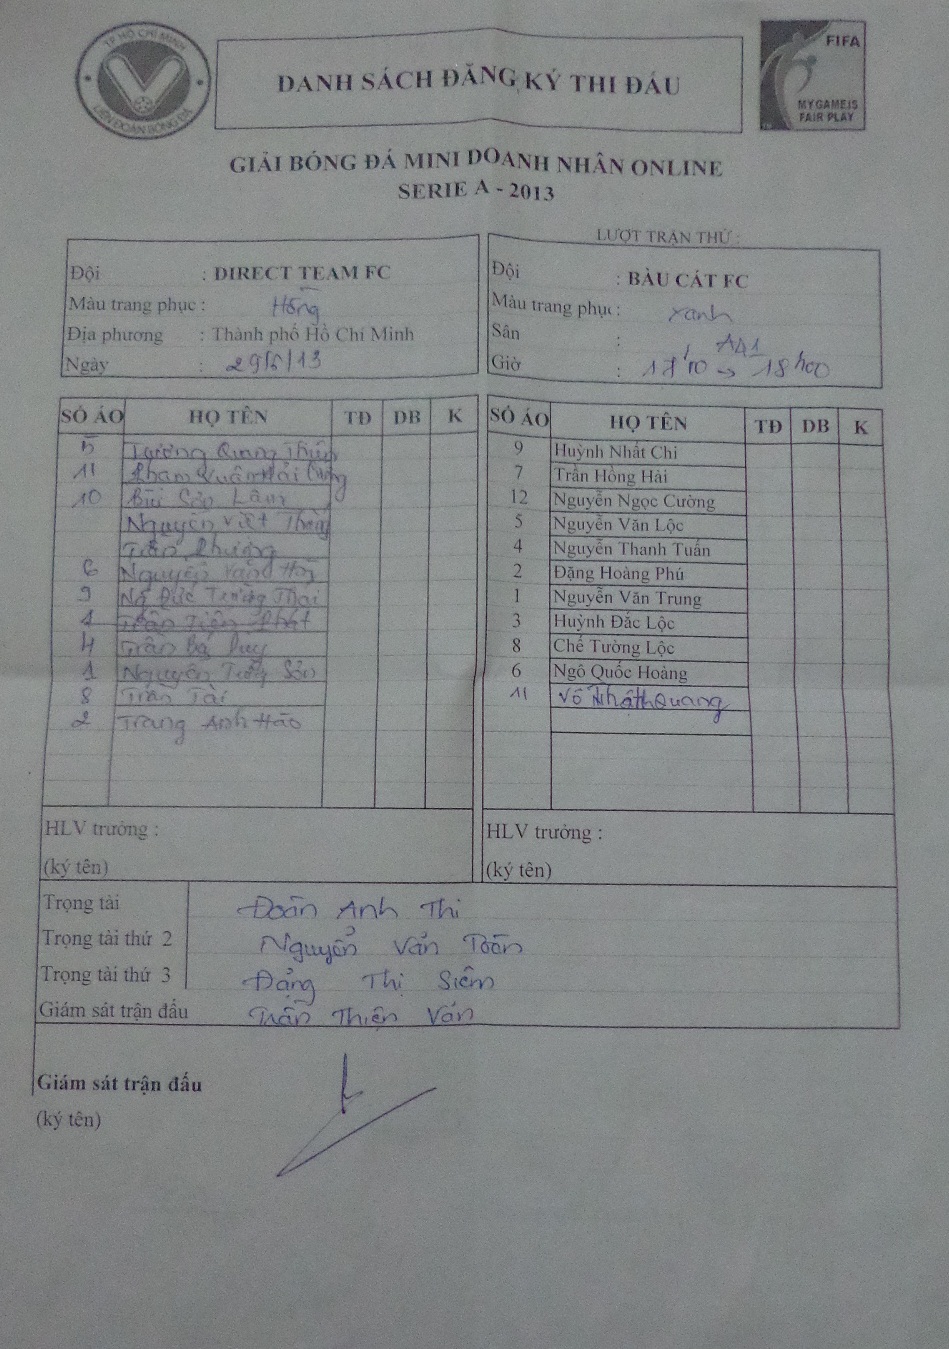 TP HỒ CHÍ MINH
LIÊN ĐOÀN BÓNG ĐÁ
DANH SÁCH ĐĂNG KÝ THI ĐẤU
FIFA
MY GAME IS
FAIR PLAY
GIẢI BÓNG ĐÁ MINI DOANH NHÂN ONLINE
SERIE A - 2013
LƯỢT TRẬN THỨ :
Đội : DIRECT TEAM FC
Màu trang phục : Hồng
Địa phương : Thành phố Hồ Chí Minh
Ngày : 29/6/13
Đội : BÀU CÁT FC
Màu trang phục : xanh
Sân :
Giờ : 18h00
SỐ ÁO HỌ TÊN TĐ DB K
5 Trương Quang
11 Phạm Xuân Hải
10 Bùi Sơn Lâm
Nguyễn Việt
Trần Phương
6 Nguyễn
9 Đức Trường Thái
1 Trần Tiến Phát
4 Trần Bá Duy
1 Nguyễn Sơn
8 Trần Tài
2 Trang Anh Hào
HLV trưởng :
(ký tên)
SỐ ÁO HỌ TÊN TĐ DB K
9 Huỳnh Nhất Chi
7 Trần Hồng Hải
12 Nguyễn Ngọc Cường
5 Nguyễn Văn Lộc
4 Nguyễn Thanh Tuấn
2 Đặng Hoàng Phú
1 Nguyễn Văn Trung
3 Huỳnh Đắc Lộc
8 Chế Tường Lộc
6 Ngô Quốc Hoàng
11 Võ Nhật Quang
HLV trưởng :
(ký tên)
Trọng tài Đoàn Anh Thi
Trọng tài thứ 2 Nguyễn Văn Toàn
Trọng tài thứ 3 Đặng Thị Siêm
Giám sát trận đấu Trần Thiện Văn
Giám sát trận đấu
(ký tên)